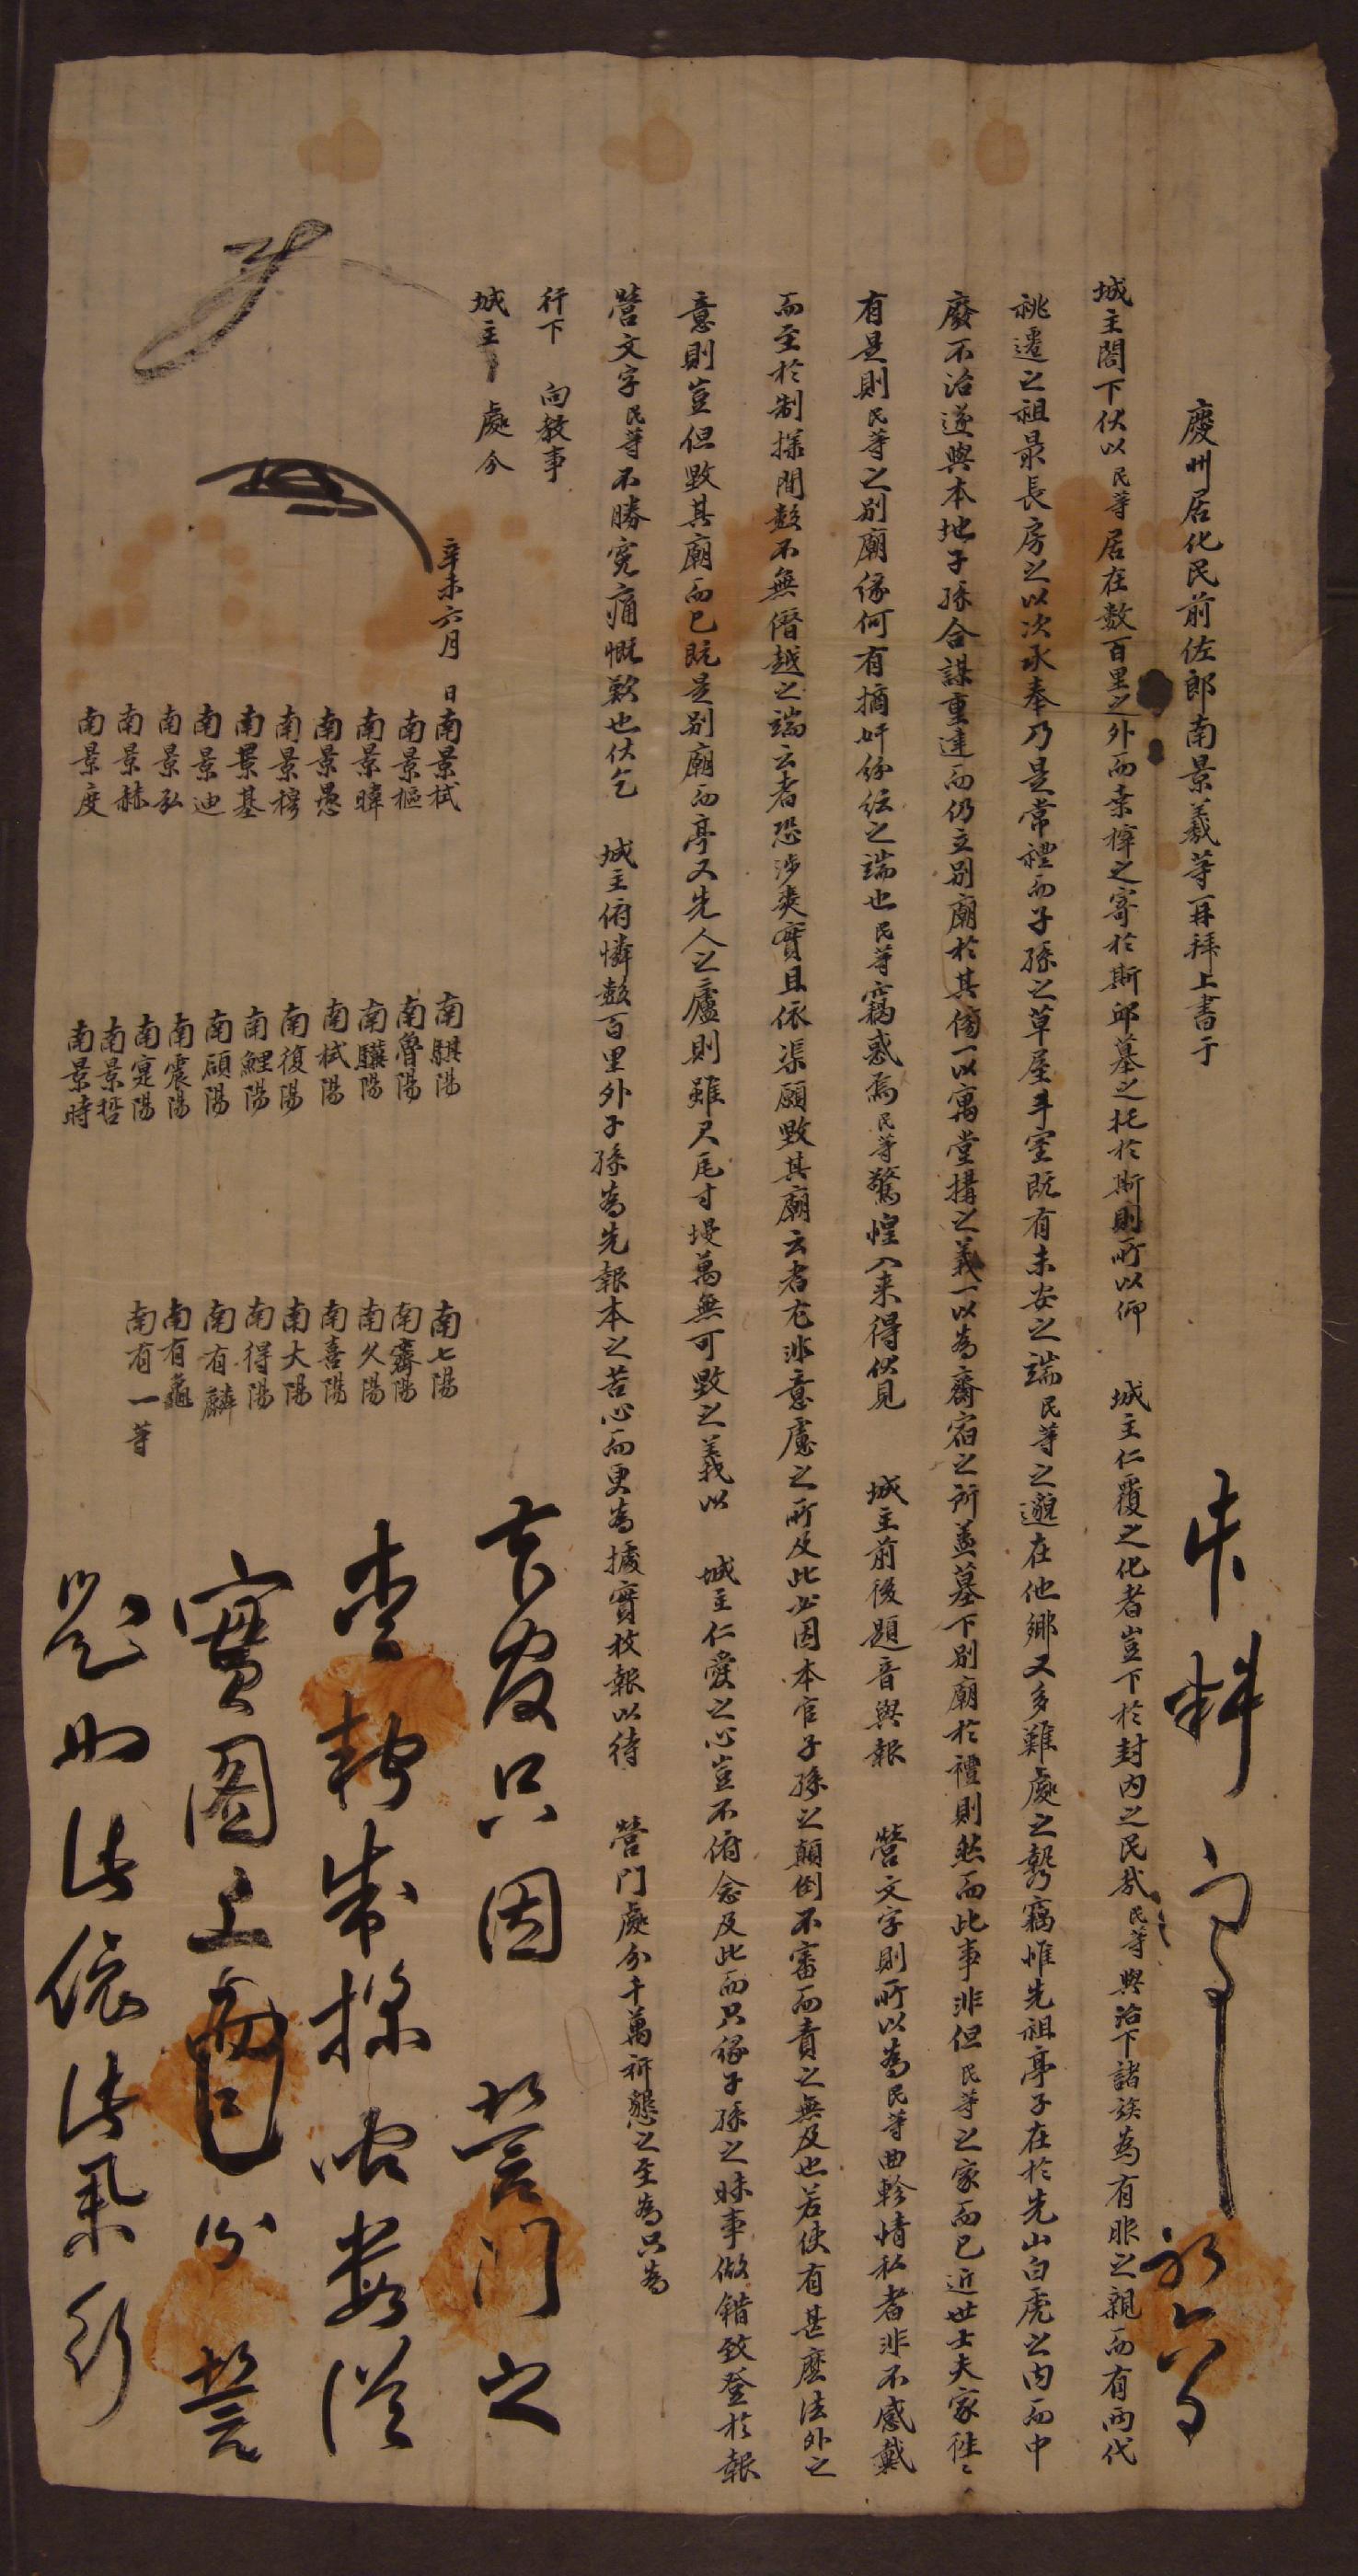 慶州居化民前佐郎南景羲等再拜上書于
城主閤下伏以民等居在數百里之外而桑梓之寄於斯邱墓之托於斯則所以仰 城主仁覆之化者豈下於封內之民哉民等與治下諸族爲有服之親而有兩代
祧遷之祖最長房之以次承奉乃是常禮而子孫之草屋斗室既有未安之端民等之邈在他鄉又多難處之勢竊惟先祖亭子在於先山白虎之內而中
廢不治遂與本地子孫合謀重建而仍立別廟於其傍一以寓堂搆之義一以爲齋宿之所盖墓下別廟於禮則然而此事非但民等之家而已近世士夫家徃〻
有是則民等之別廟緣何有摘奸紛紜之端也民等竊惑焉民等驚惶入来得伏見 城主前後題音與報 營文字則所以爲民等曲軫情私者非不感戴
而至於制㨾間數不無僭越之端云者恐涉爽實且依渠願毁其廟云者尤非意慮之所及此必因本官子孫之顛倒不審而責之無及也若使有甚麽法外之
意則豈但毁其廟而已既是別廟而亭又先人之廬則雖尺瓦寸墁萬無可毁之義以 城主仁愛之心豈不俯念及此而只緣子孫之昧事做錯致登於報
營文字民等不勝寃痛慨歎也伏乞 城主俯憐數百里外子孫爲先報本之苦心而更爲據實枚報以待 營門處分千萬祈懇之至爲只爲
行下 向敎事
城主 處分
辛未六月 日南景栻
南景樞
南景暐
南景愚
南景穆
南景基
南景迪
南景弘
南景赫
南景度
南騏陽
南魯陽
南驥陽
南栻陽
南復陽
南鯉陽
南碩陽
南震陽
南寔陽
南景哲
南景時
南七陽
南齊陽
南久陽
南喜陽
南大陽
南得陽
南有麟
南有龜
南有一等
官只因 營門之
查 制㨾間數從
實圖上而已 營
題如法依法